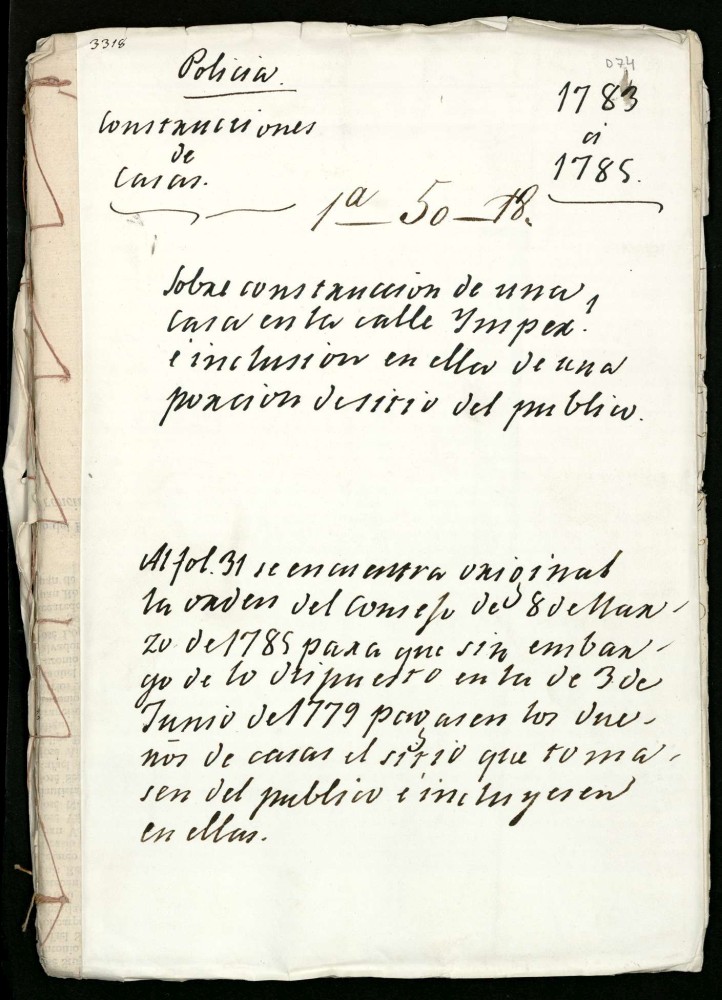 3318
074
Policia.
1783
Construcciones
a
de
1785.
Casas.
1ª 50 - 18.
Sobre construccion de una
casa en la calle Ymper.l
é inclusion en ella de una
porcion de sitio del publico.
Al fol. 31 se encuentra original
la orden del Consejo de 8 de Mar-
zo de 1785 para que sin embar-
go de lo dispuesto en la de 3 de
Junio de 1779 pagasen los due-
ños de casas el sitio que toma-
sen del publico é incluyesen
en ellas.